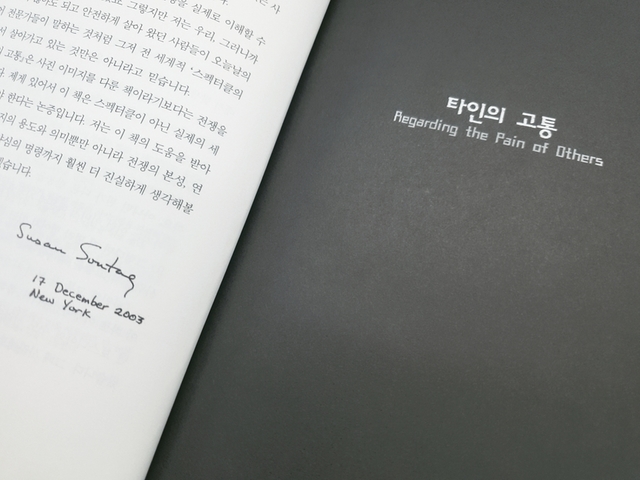 실제로 이해할 수
않아도 되고 안전하게 살아 왔던 사람들이 오늘날의
전문가들이 말하는 것처럼 그저 전 세계적 '스펙터클의
살아가고 있는 것만은 아니라고 믿습니다.
고통』은 사진 이미지를 다룬 책이라기보다는 전쟁을
다. 제게 있어서 이 책은 스펙터클이 아닌 실제의 세
야 한다는 논증입니다. 저는 이 책의 도움을 받아
지의 용도와 의미뿐만 아니라 전쟁의 본성, 연
양심의 명령까지 훨씬 더 진실하게 생각해볼
습니다.
Susan Sontag
17 December 2003
New York
타인의 고통
Regarding the Pain of Others